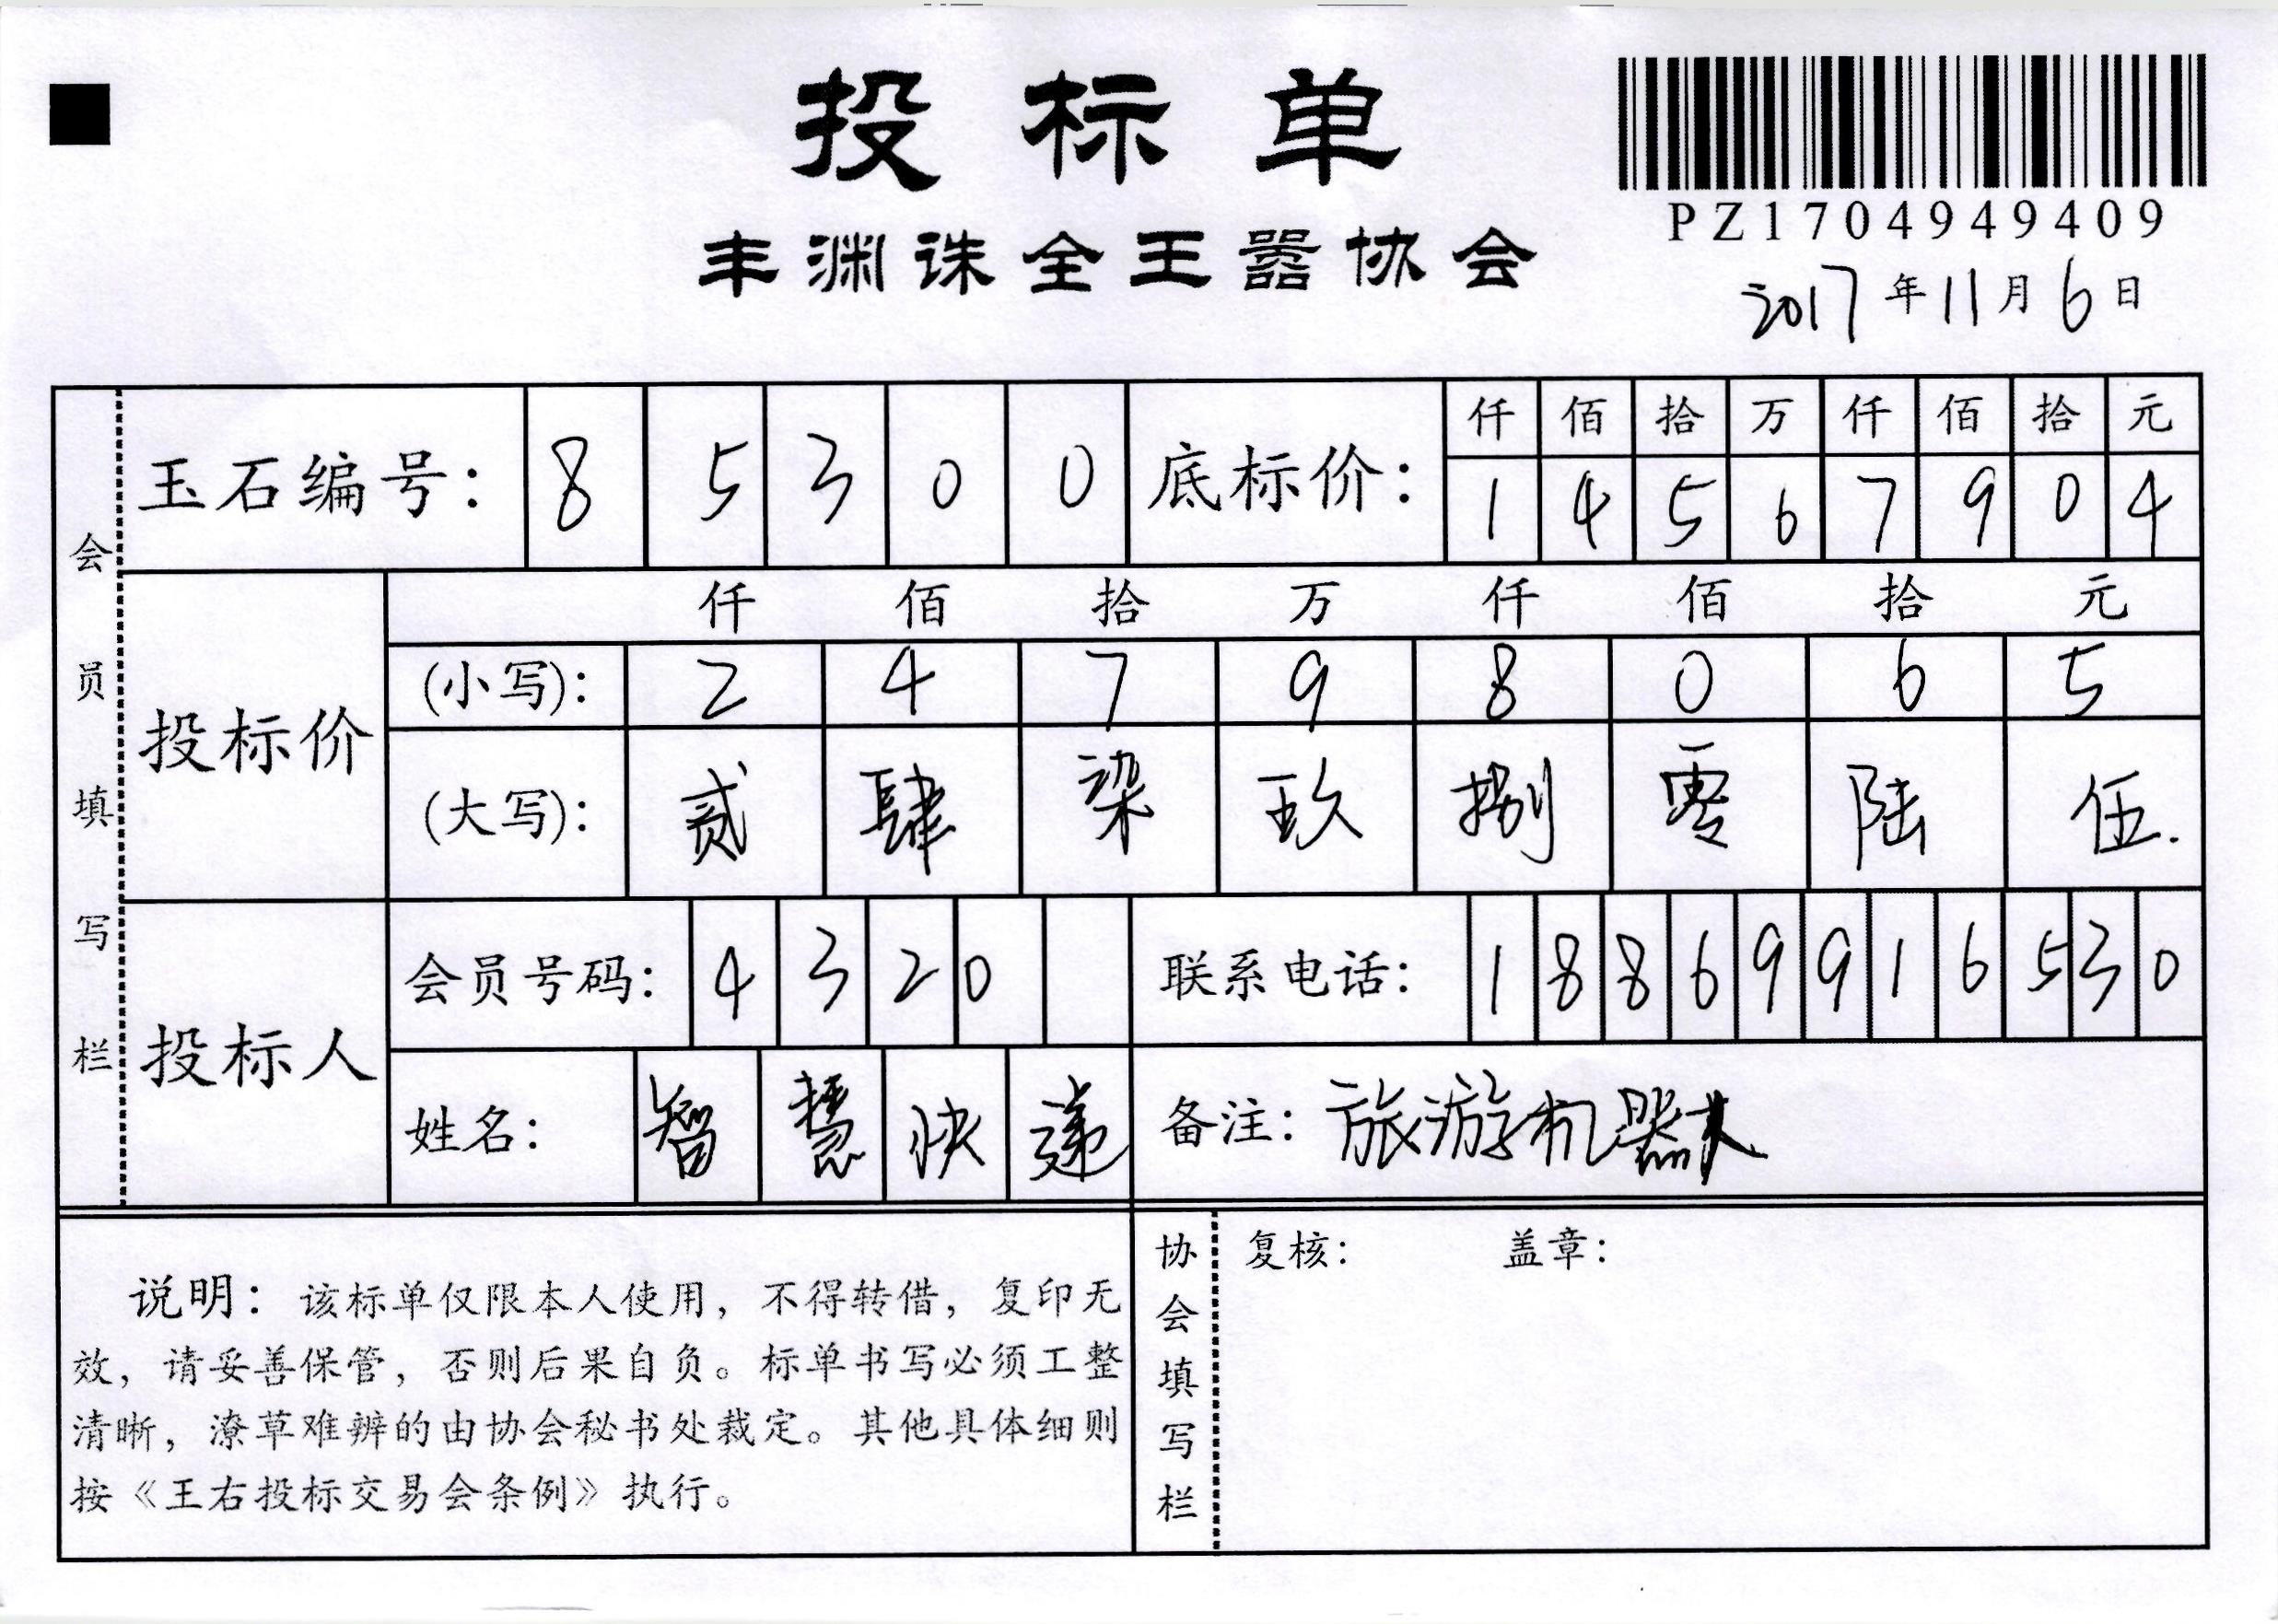 投标单
PZ1704949409
丰渊诛全王嚣协会
2017年11月6日
会员填写栏
玉石编号：85300
底标价：
仟佰拾万仟佰拾元
14567904
投标价
仟佰拾万仟佰拾元
(小写)：24798065
(大写)：贰肆柒玖捌零陆伍.
投标人
会员号码：4320
联系电话：18869916530
姓名：智慧快递
备注：旅游机器人
说明：该标单仅限本人使用，不得转借，复印无
效，请妥善保管，否则后果自负。标单书写必须工整
清晰，潦草难辨的由协会秘书处裁定。其他具体细则
按《王右投标交易会条例》执行。
协会填写栏
复核： 盖章：